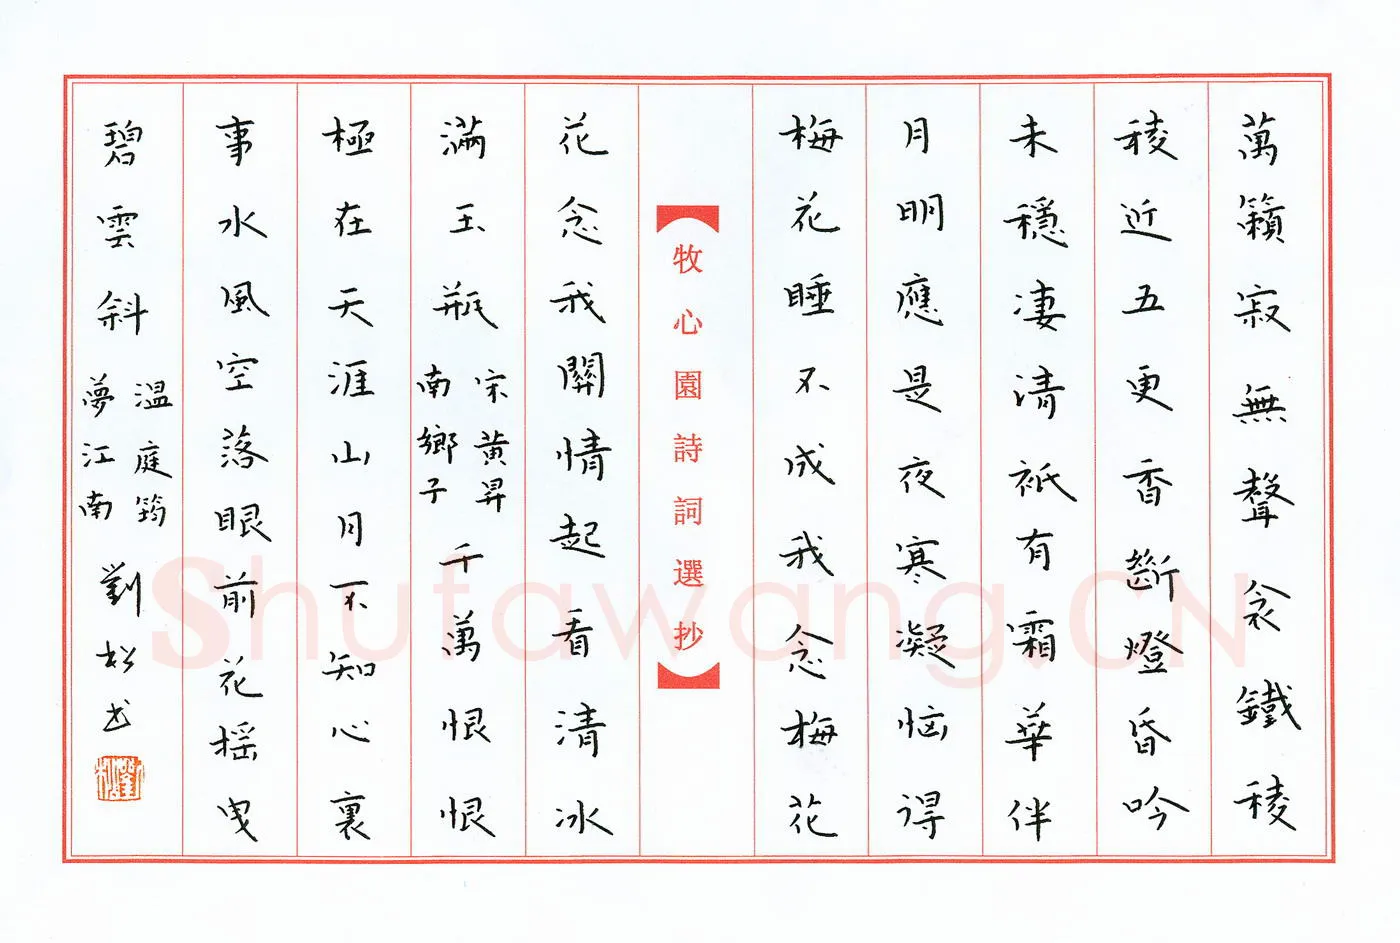 萬籟寂無聲衾鐵稜
稜近五更香斷燈昏吟
未穩凄清衹有霜華伴
月明應是夜寒凝恼得
梅花睡不成我念梅花
【牧心園詩詞選抄】
花念我關情起看清冰
滿玉瓶
宋黄昇
南鄉子
千萬恨恨
極在天涯山月不知心裏
事水風空落眼前花摇曳
碧雲斜
温庭筠
夢江南
劉松书
Shufawang.CN